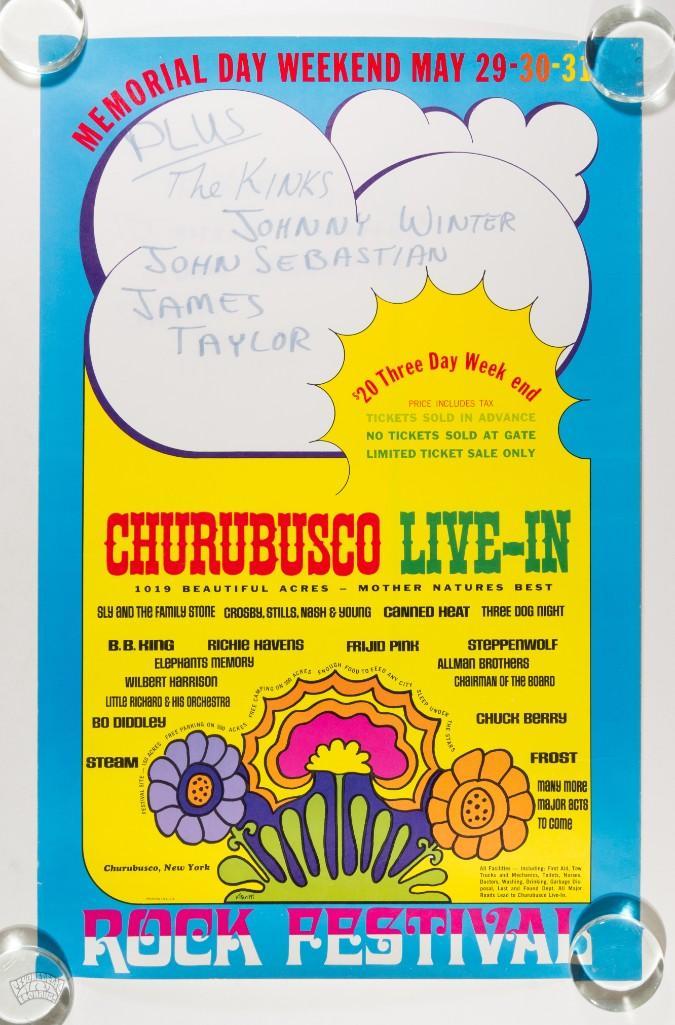 MEMORIAL DAY WEEKEND MAY 29-30-31
PLUS
The KINKS
JOHNNY WINTER
JOHN SEBASTIAN
JAMES
TAYLOR
$20 Three Day Week end
PRICE INCLUDES TAX
TICKETS SOLD IN ADVANCE
NO TICKETS SOLD AT GATE
LIMITED TICKET SALE ONLY
CHURUBUSCO LIVE-IN
1019 BEAUTIFUL ACRES – MOTHER NATURES BEST
SLY AND THE FAMILY STONE CROSBY, STILLS, NASH & YOUNG CANNED HEAT THREE DOG NIGHT
B.B. KING RICHIE HAVENS FRIJID PINK STEPPENWOLF
ELEPHANTS MEMORY ALLMAN BROTHERS
WILBERT HARRISON CHAIRMAN OF THE BOARD
LITTLE RICHARD & HIS ORCHESTRA
BO DIDDLEY CHUCK BERRY
STEAM FROST
FESTIVAL SITE – 150 ACRES FREE PARKING ON 300 ACRES FREE CAMPING ON 300 ACRES ENOUGH FOOD TO FEED ANY CITY SLEEP UNDER THE STARS
MANY MORE
MAJOR ACTS
TO COME
Churubusco, New York
All Facilities – Including: First Aid, Tow
Trucks and Mechanics, Toilets, Nurses,
Doctors, Washing, Drinking, Garbage Dis-
posal, Lost and Found Dept. All Major
Roads Lead to Churubusco Live-In.
ROCK FESTIVAL